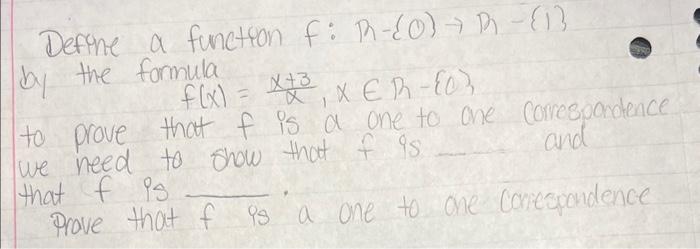 Define a function f: R-{0} → R-{1}
by the formula
f(x) = x+3/x, x ∈ R-{0}
to prove that f is a one to one correspondence
we need to show that f is ____ and
that f is ____.
Prove that f is a one to one correspondence